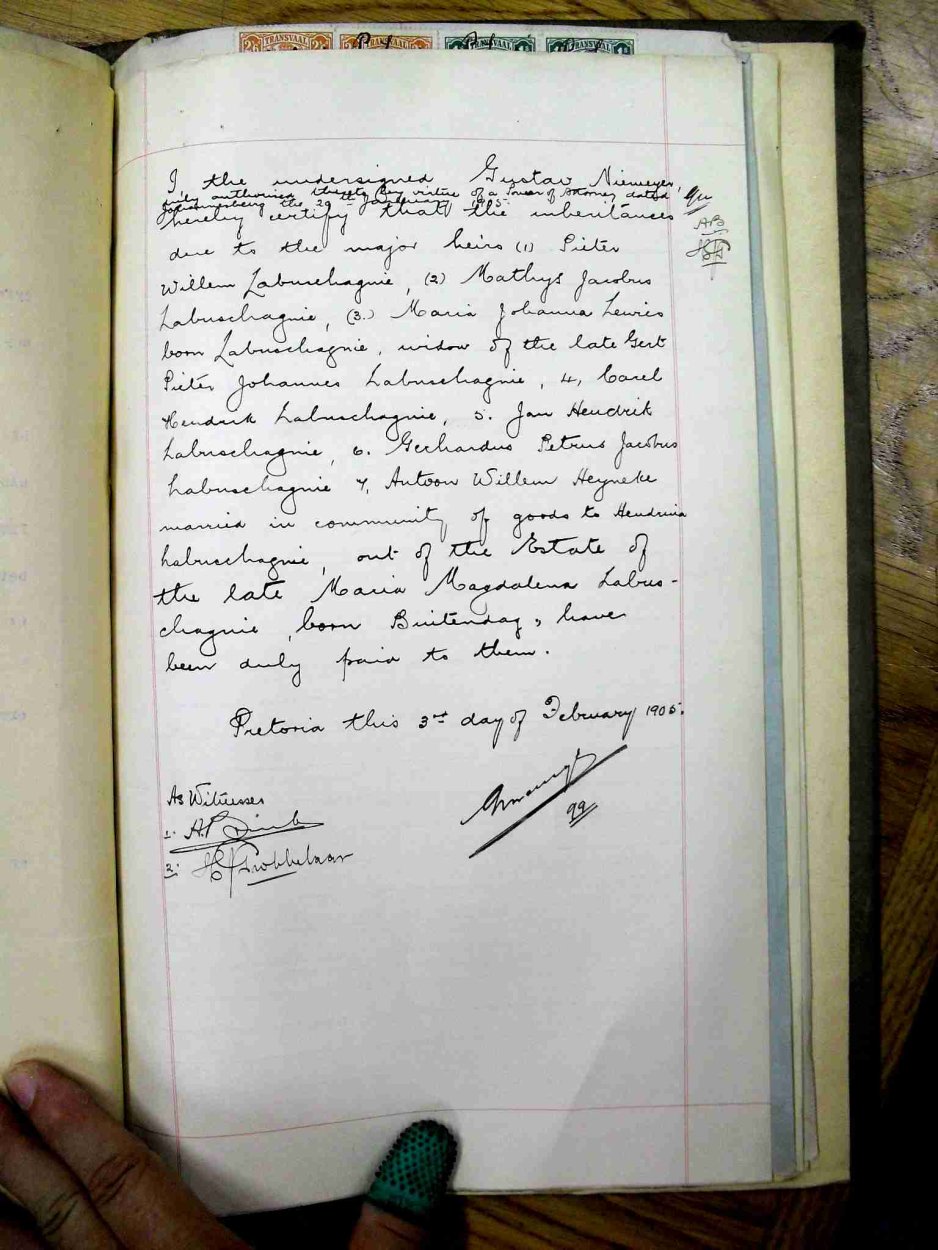 TRANSVAAL TRANSVAAL TRANSVAAL TRANSVAAL
I, the undersigned Gustav Niemeyer,
duly authorised thereto by virtue of a Power of Attorney dated
Johannesburg the 29th January 1905.
hereby certify that the inheritances
due to the major heirs (1) Pieter
Willem Labuschagnie, (2) Mathys Jacobus
Labuschagnie, (3.) Maria Johanna Lewies
born Labuschagnie, widow of the late Gert
Pieter Johannes Labuschagnie, 4, Carel
Hendrik Labuschagnie, 5. Jan Hendrik
Labuschagnie, 6. Gerhardus Petrus Jacobus
Labuschagnie 7, Antoon Willem Heyneke
married in community of goods to Hendrina
Labuschagnie, out of the Estate of
the late Maria Magdalena Labus-
chagnie, born Buitendag, have
been duly paid to them.
Pretoria this 3rd day of February 1905.
As Witnesses
1.
2. Grobbelaar
qq